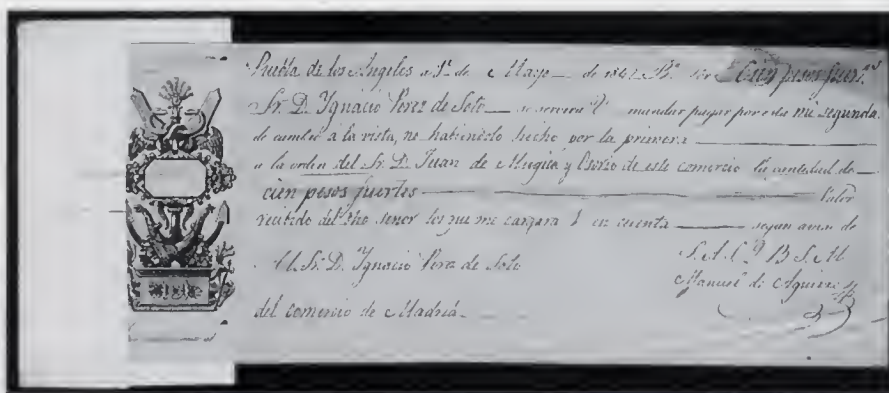 Puebla de los Angeles a 1º de Mayo de 1842 Bº por Cien pesos fuert.es
Sr. D. Ygnacio Perez de Soto se servira V. mandar pagar por esta mi segunda
de cambio a la vista, no habiendolo hecho por la primera
a la orden del Sr. D. Juan de Mugica y Osorio de este comercio la cantidad de
cien pesos fuertes Valor
recibido del dho señor los que me cargara V en cuenta segun aviso de
Al Sr. D. Ygnacio Perez de Soto S. A. S. Q B S. M
Manuel de Aguirre
del comercio de Madrid.